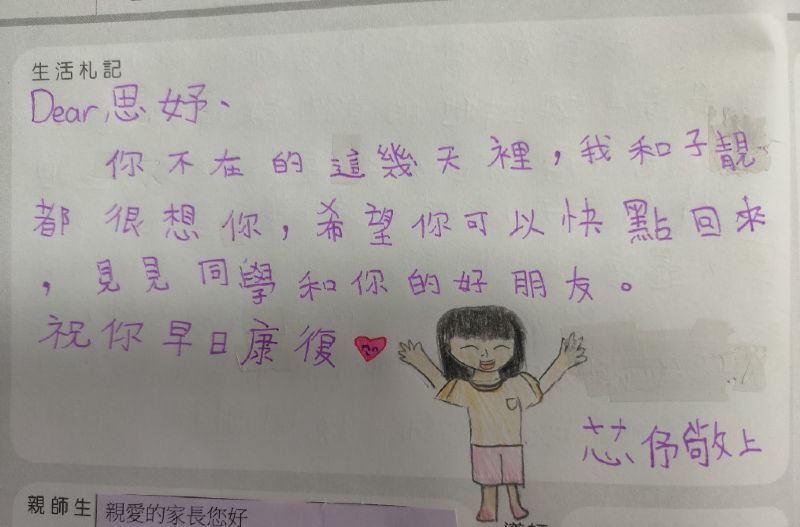 生活札記
Dear 思妤、
你不在的這幾天裡，我和子靚
都很想你，希望你可以快點回來
，見見同學和你的好朋友。
祝你早日康復
芯伃敬上
親師生
親愛的家長您好